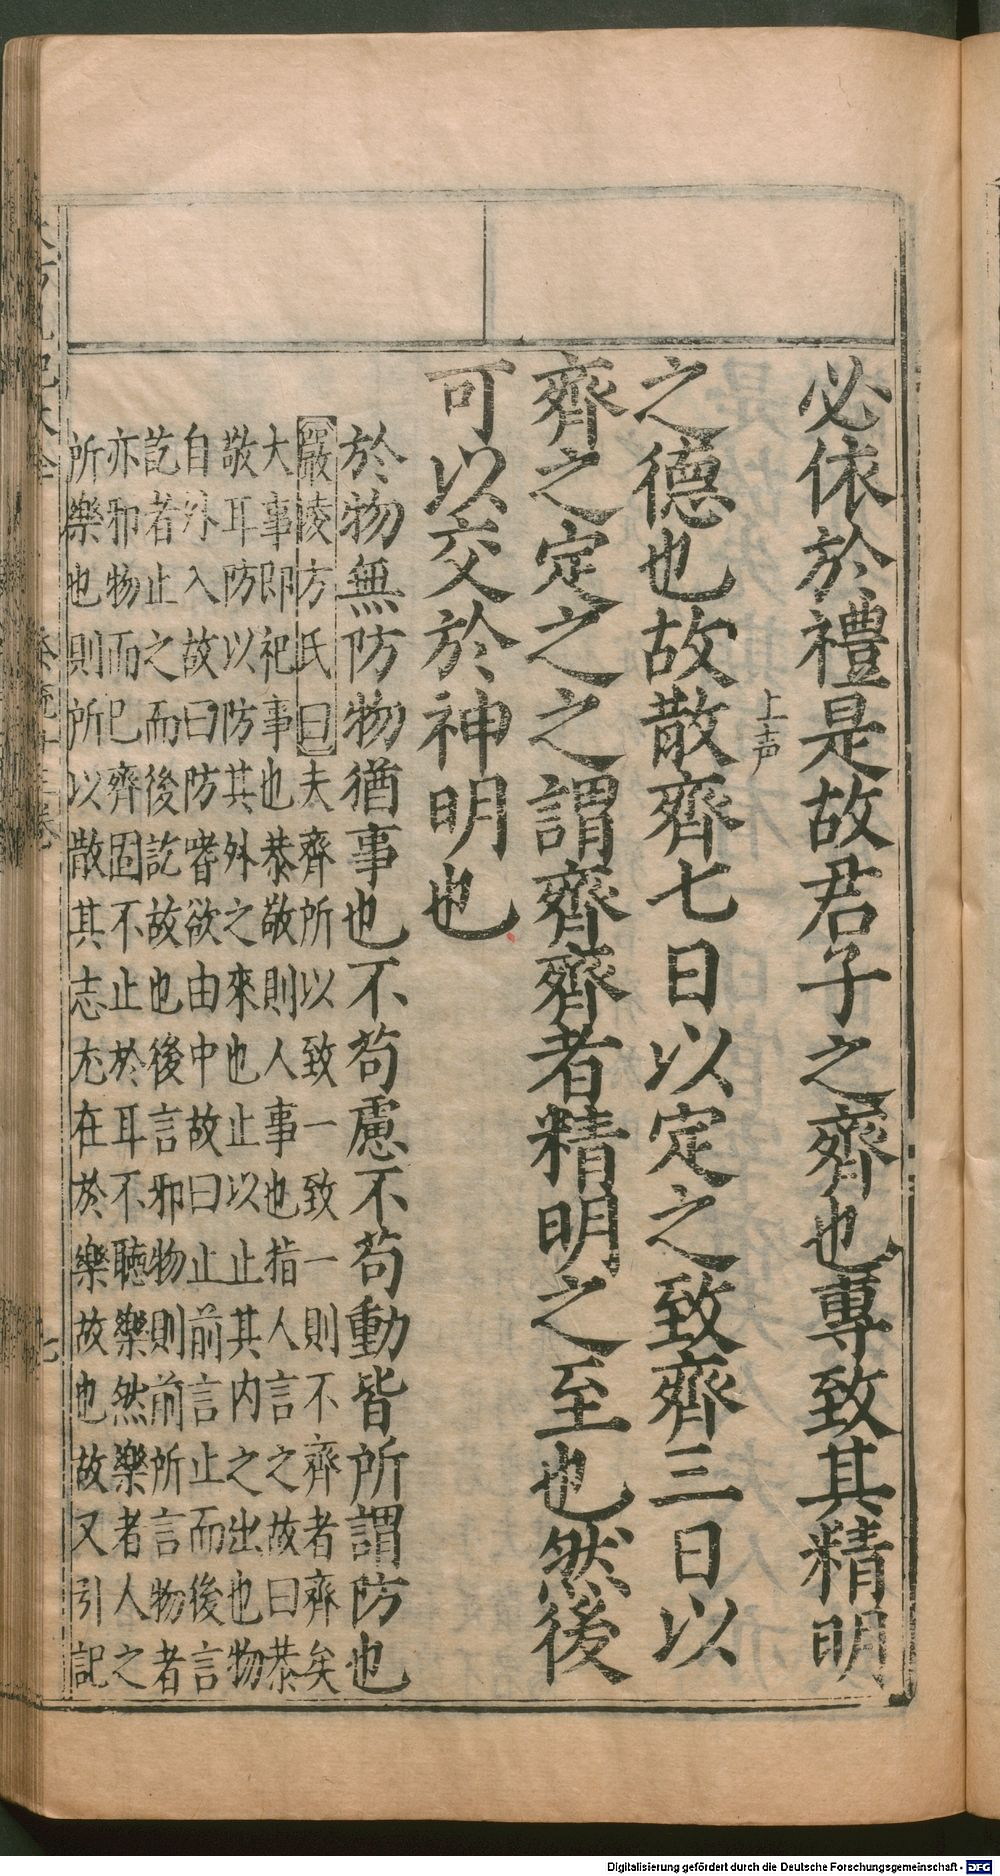 必依於禮是故君子之齊也專致其精明
之德也故散齊七日以定之致齊三日以
上声
齊之定之之謂齊齊者精明之至也然後
可以交於神明也
於物無防物猶事也不苟慮不苟動皆所謂防也
嚴陵方氏曰夫齊所以致一致一則不齊者齊矣
大事即祀事也恭敬則人事也指人言之故曰恭
敬耳防以防其外之來也止以止其内之出也物
自外入故曰防嗜欲由中故曰止前言止而後言
訖者止之而後訖故也後言邪物則前所言物者
亦邪物而已齊固不止於耳不聽樂然樂者人之
所樂也則所以散其志尤在於樂故也故又引記
七
Digitalisierung gefördert durch die Deutsche Forschungsgemeinschaft - DFG